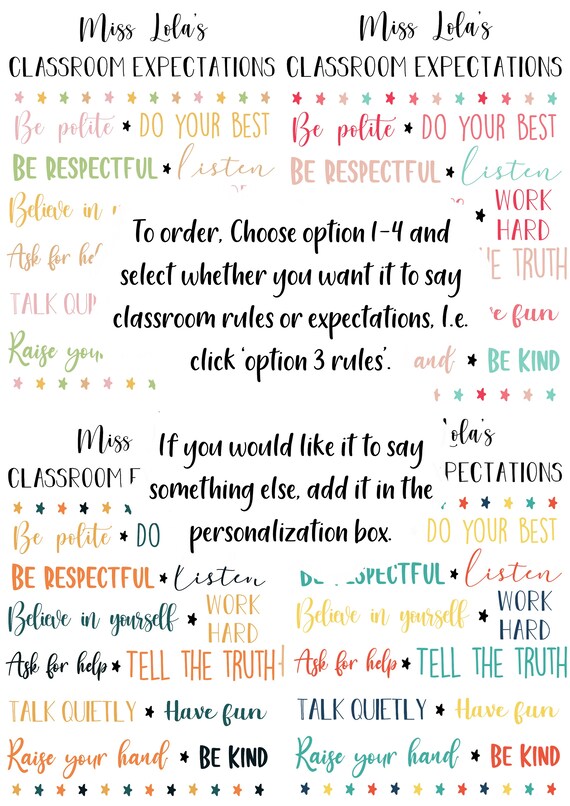 Miss Lola's
CLASSROOM EXPECTATIONS
Be polite ★ DO YOUR BEST
BE RESPECTFUL ★ listen
Believe in
Ask for
TALK
Raise
Miss Lola's
CLASSROOM EXPECTATIONS
Be polite ★ DO YOUR BEST
BE RESPECTFUL ★ listen
★ WORK
HARD
TRUTH
fun
and ★ BE KIND
To order, Choose option 1-4 and
select whether you want it to say
classroom rules or expectations, I.e.
click 'option 3 rules'.
If you would like it to say
something else, add it in the
personalization box.
Miss
CLASSROOM
Be polite ★ DO
BE RESPECTFUL ★ Listen
Believe in yourself ★ WORK
HARD
Ask for help ★ TELL THE TRUTH
TALK QUIETLY ★ Have fun
Raise your hand ★ BE KIND
Lola's
EXPECTATIONS
DO YOUR BEST
BE RESPECTFUL ★ listen
Believe in yourself ★ WORK
HARD
Ask for help ★ TELL THE TRUTH
TALK QUIETLY ★ Have fun
Raise your hand ★ BE KIND